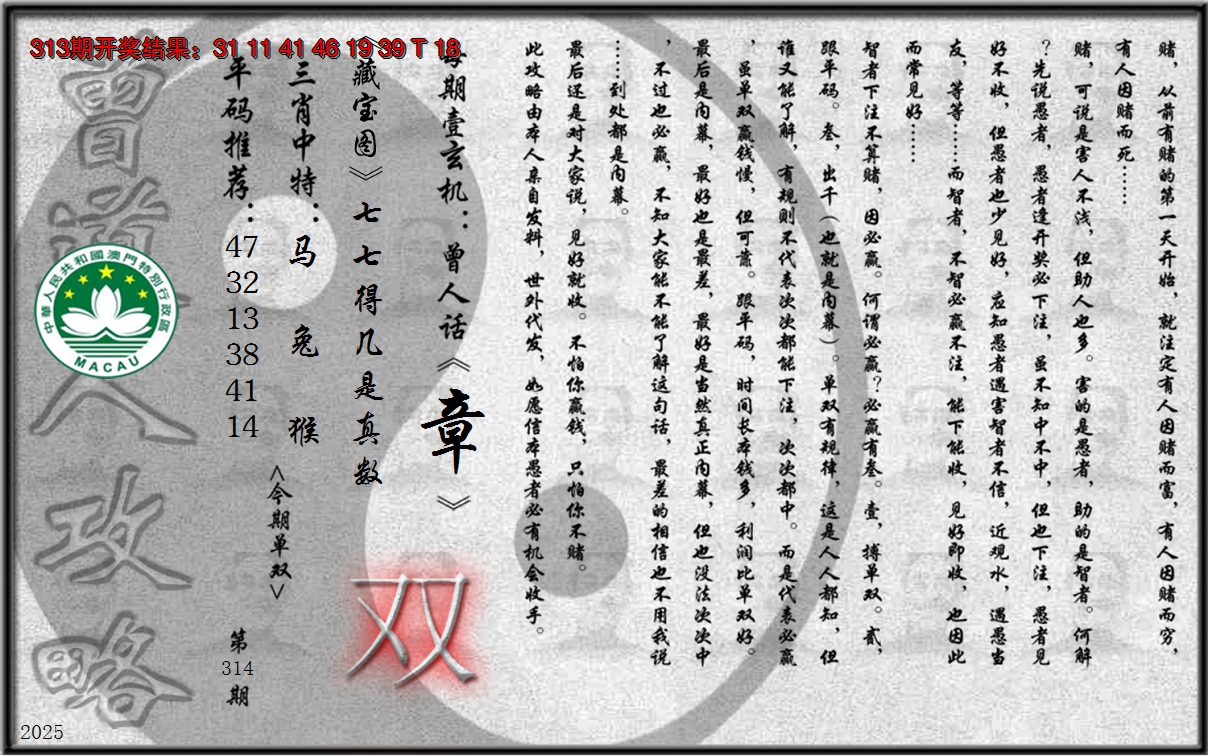 313期开奖结果：31 11 41 46 19 39 T 18
赌，从前有赌的第一天开始，就注定有人因赌而富，有人因赌而穷，
有人因赌而死……
赌，可说是害人不浅，但助人也多。害的是愚者，助的是智者。何解
？先说愚者，愚者逢开奖必下注，虽不知中不中，但也下注，愚者见
好不收，但愚者也少见好，应知愚者遇害智者不信，近观水，遇愚当
友，等等……而智者，不智必赢不注，能下能收，见好即收，也因此
而常见好……
智者下注不算赌，因必赢。何谓必赢？必赢有叁。壹，搏单双。贰，
跟平码。叁，出千（也就是内幕）。单双有规律，这是人人都知，但
谁又能了解，有规则不代表次次都能下注，次次都中。而是代表必赢
，虽单双赢钱慢，但可靠。跟平码，时间长本钱多，利润比单双好。
最后是内幕，最好也是最差，最好是当然真正内幕，但也没法次次中
，不过也必赢，不知大家能不能了解这句话，最差的相信也不用我说
……到处都是内幕。
最后还是对大家说，见好就收。不怕你赢钱，只怕你不赌。
此攻略由本人亲自发料，世外代发，如愿信本愚者必有机会收手。
每期壹玄机：曾人话《章》
《藏宝图》七七得几是真数
三肖中特：马 兔 猴
平码推荐：47 32 13 38 41 14
<今期单双>
双
第314期
曾道人攻略
中華人民共和國澳門特別行政區
MACAU
2025